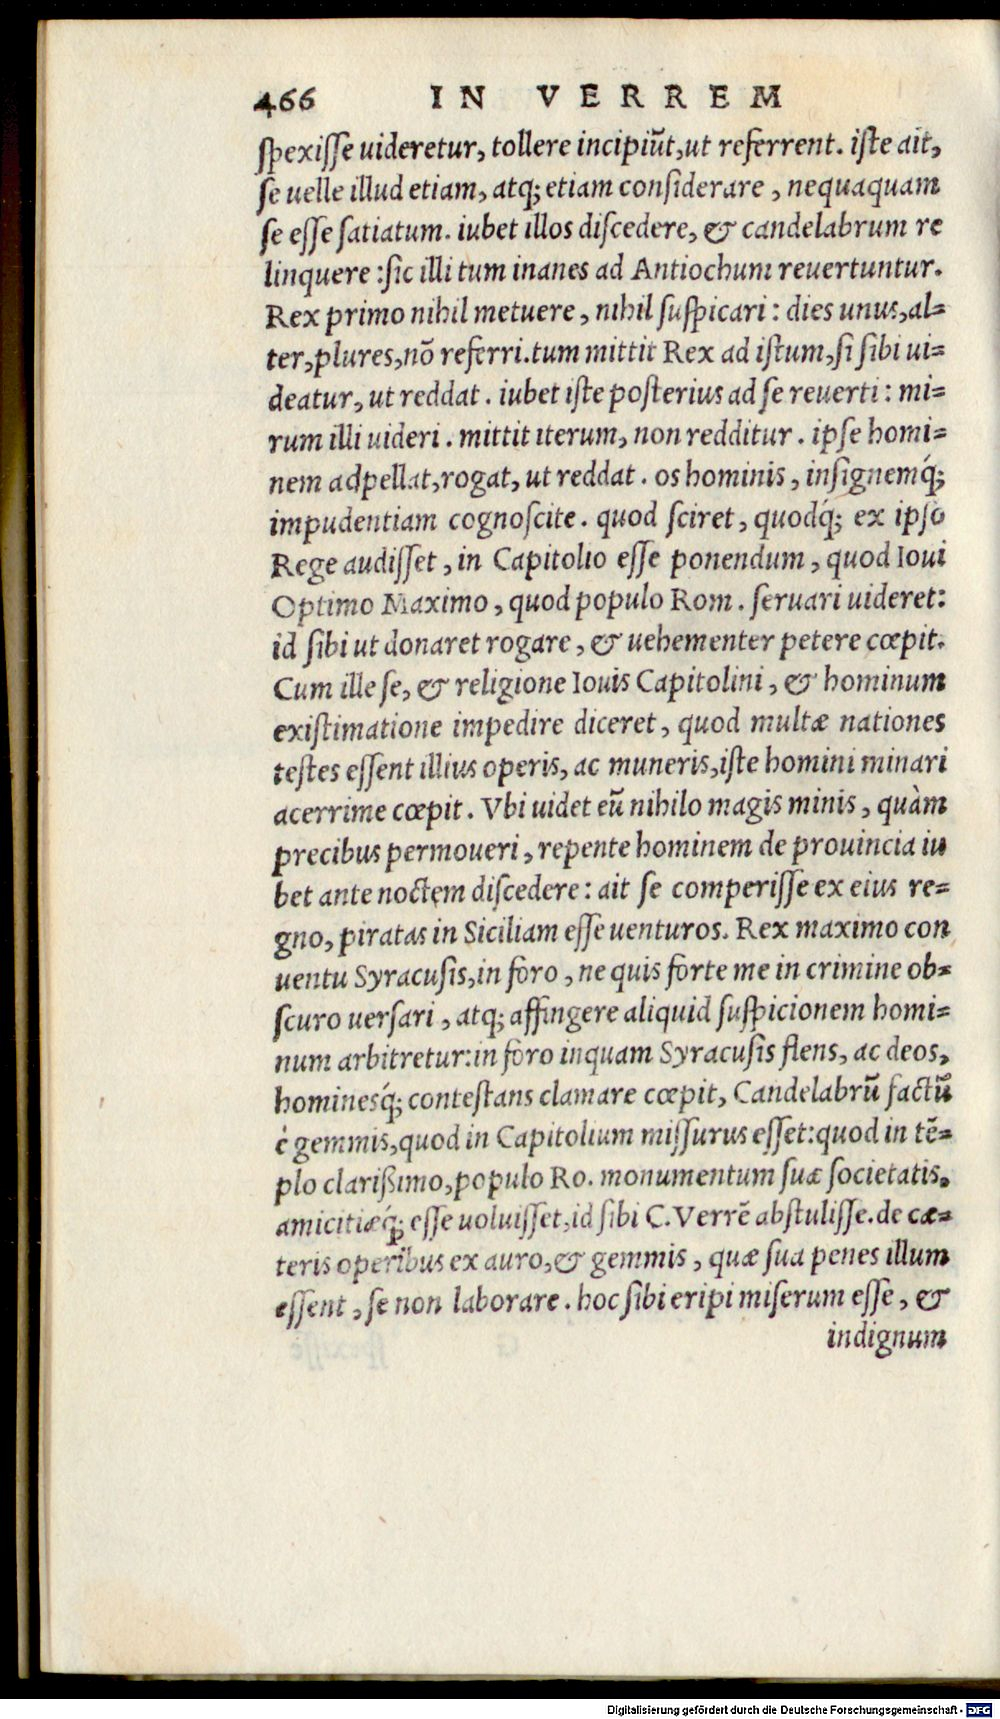 466 IN VERREM
ſpexiſſe uideretur, tollere incipiūt, ut referrent. iſte ait,
ſe uelle illud etiam, atq; etiam conſiderare, nequaquam
ſe eſſe ſatiatum. iubet illos diſcedere, & candelabrum re
linquere: ſic illi tum inanes ad Antiochum reuertuntur.
Rex primo nihil metuere, nihil ſuſpicari: dies unus, al=
ter, plures, nō referri. tum mittit Rex ad iſtum, ſi ſibi ui=
deatur, ut reddat. iubet iſte poſterius ad ſe reuerti: mi=
rum illi uideri. mittit iterum, non redditur. ipſe homi=
nem adpellat, rogat, ut reddat. os hominis, inſignemq́;
impudentiam cognoſcite. quod ſciret, quodq́; ex ipſo
Rege audiſſet, in Capitolio eſſe ponendum, quod Ioui
Optimo Maximo, quod populo Rom. ſeruari uideret:
id ſibi ut donaret rogare, & uehementer petere cœpit.
Cum ille ſe, & religione Iouis Capitolini, & hominum
exiſtimatione impedire diceret, quod multæ nationes
teſtes eſſent illius operis, ac muneris, iſte homini minari
acerrime cœpit. Vbi uidet eū nihilo magis minis, quàm
precibus permoueri, repente hominem de prouincia iu
bet ante noctem diſcedere: ait ſe comperiſſe ex eius re=
gno, piratas in Siciliam eſſe uenturos. Rex maximo con
uentu Syracuſis, in foro, ne quis forte me in crimine ob=
ſcuro uerſari, atq; affingere aliquid ſuſpicionem homi=
num arbitretur: in foro inquam Syracuſis flens, ac deos,
hominesq́; conteſtans clamare cœpit, Candelabrū factū
è gemmis, quod in Capitolium miſſurus eſſet: quod in tē=
plo clarißimo, populo Ro. monumentum ſuæ ſocietatis,
amicitiæq́; eſſe uoluiſſet, id ſibi C. Verrē abſtuliſſe. de cæ=
teris operibus ex auro, & gemmis, quæ ſua penes illum
eſſent, ſe non laborare. hoc ſibi eripi miſerum eſſe, &
indignum
Digitalisierung gefördert durch die Deutsche Forschungsgemeinschaft - DFG